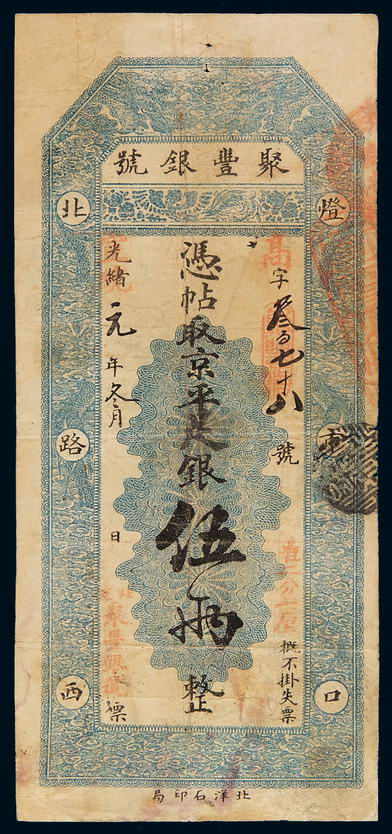 聚豐銀號
燈
口
字叁百七十八號
概不掛失票
憑帖取京平足銀伍兩整
光緒元年冬月 日
聚豐銀號
票
北路西
北洋石印局